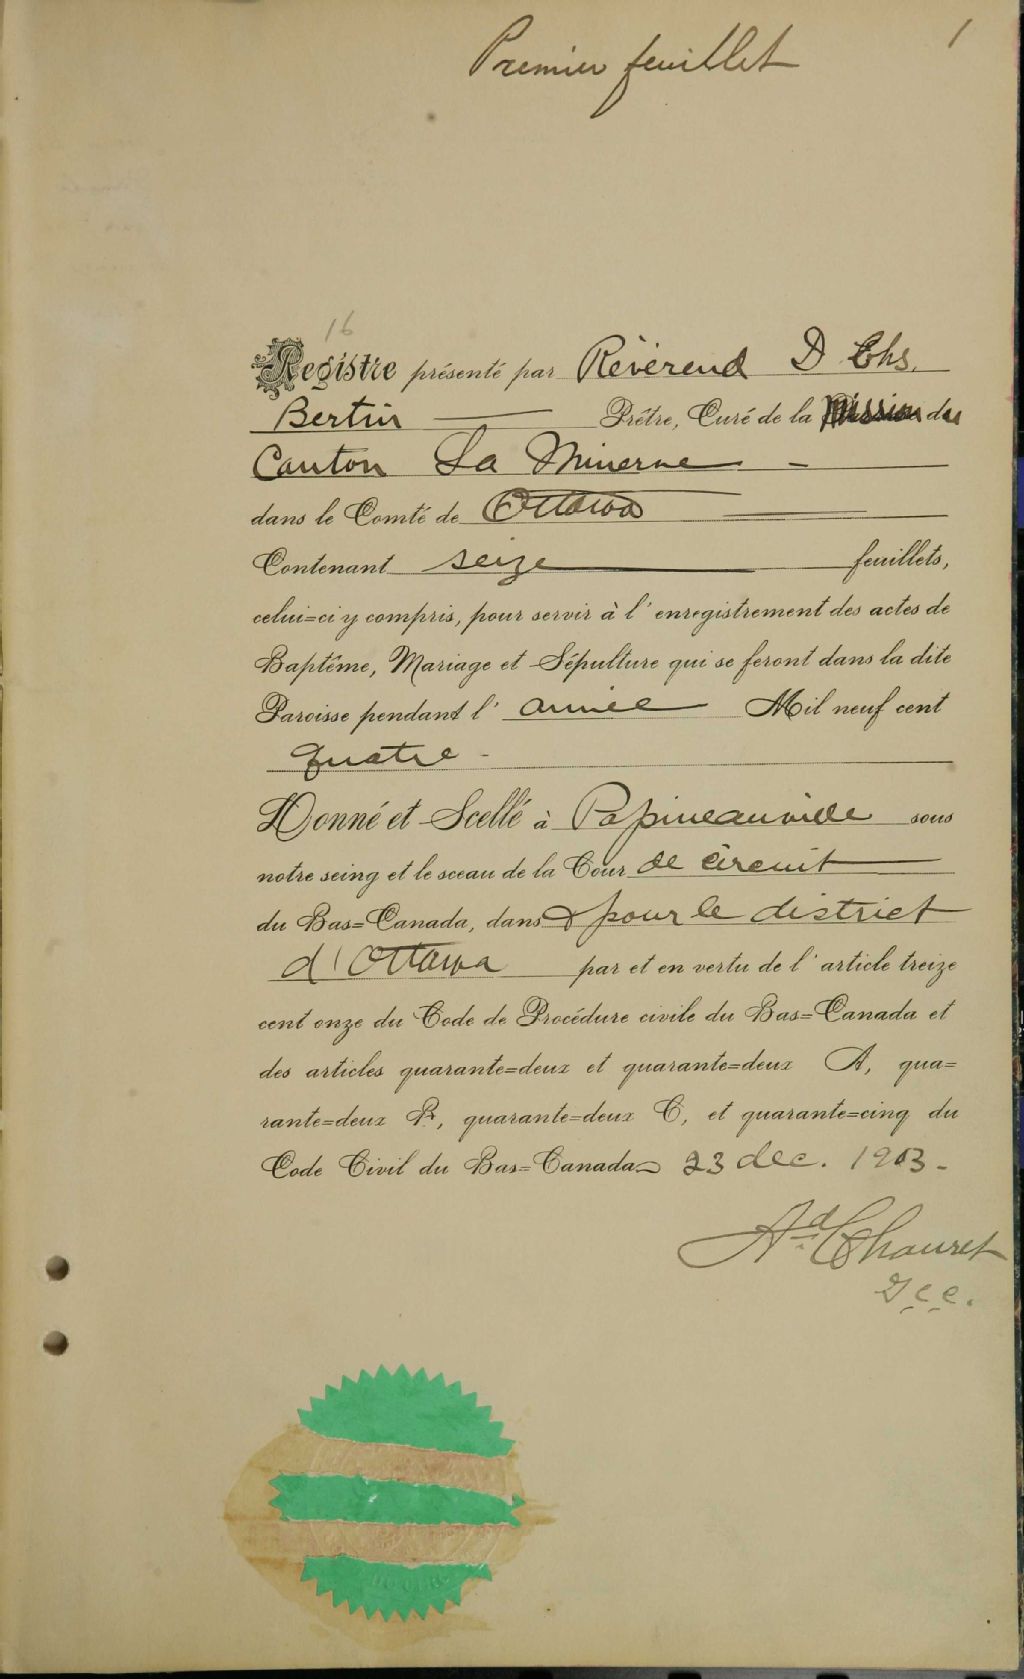 1
Premier feuillet
16
Registre présenté par Révérend D Chs.
Bertin Prêtre, Curé de la Mission du
Canton La Minerve
dans le Comté de Ottawa
Contenant seize feuillets,
celui=ci y compris, pour servir à l'enregistrement des actes de
Baptême, Mariage et Sépulture qui se feront dans la dite
Paroisse pendant l' année Mil neuf cent
quatre -
Donné et Scellé à Papineauville sous
notre seing et le sceau de la Cour de circuit
du Bas=Canada, dans & pour le district
d'Ottawa par et en vertu de l'article treize
cent onze du Code de Procédure civile du Bas=Canada et
des articles quarante=deux et quarante=deux A, qua=
rante=deux B, quarante=deux C, et quarante=cinq du
Code Civil du Bas=Canada 23 dec. 1903 -
Ad Chauret
g c c.